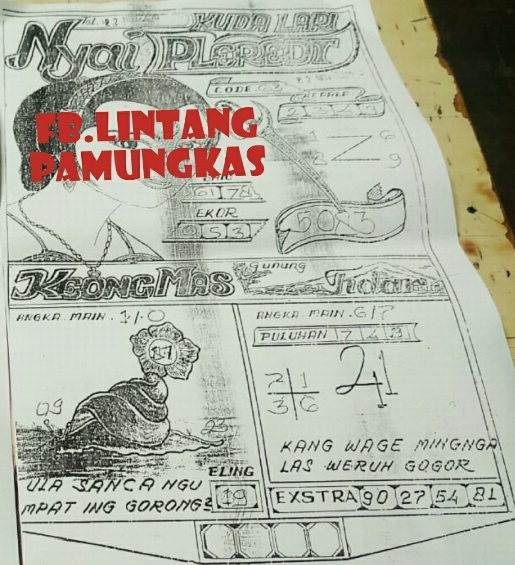 KUDA LARI
Nyai PLEREDT
CODE
FB.LINTANG
PAMUNGKAS
1 6
8 9
6 7 8
EKOR
0 5 3
503
KEONG MAS
Gunung
Indara
ANGKA MAIN . 1/0
87
09
ELING
19
ULA SANCA NGU
MPAT ING GORONG2
ANGKA MAIN . 6/7
PULUHAN
2 1
3 6
21
KANG WAGE MINGNGA
LAS WERUH GOGOR
EXSTRA 90 27 54 81